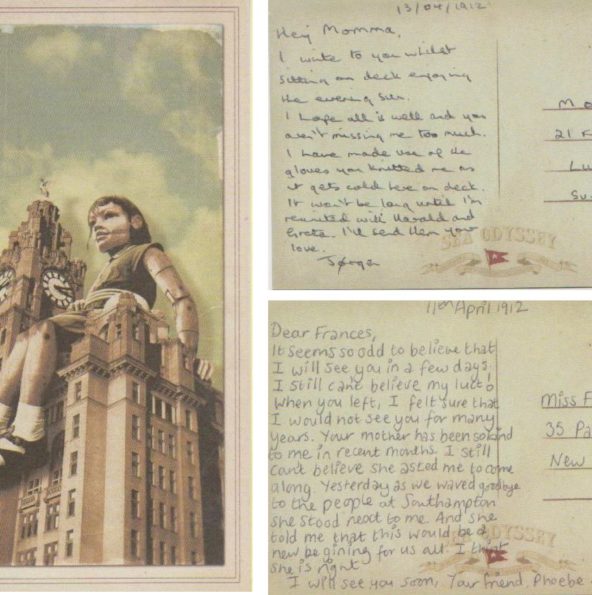 13/04/1912
Hey Momma,
I write to you whilst
sitting on deck enjoying
the evening sun.
I hope all is well and you
aren't missing me too much.
I have made use of the
gloves you knitted me as
it gets cold here on deck.
It won't be long until I'm
reunited with Harald and
Greta. I'll send them your
love.
Jørgen
SEA ODYSSEY
11th April 1912
Dear Frances,
It seems so odd to believe that
I will see you in a few days,
I still cant believe my luck!
When you left, I felt sure that
I would not see you for many
years. Your mother has been so kind
to me in recent months. I still
can't believe she asked me to come
along. Yesterday as we waved goodbye
to the people at Southampton
she stood next to me. And she
told me that this would be a
new begining for us all. I think
she is right
I will see you soon, Your friend, Phoebe
Miss F
35 Pa
New
ODYSSEY